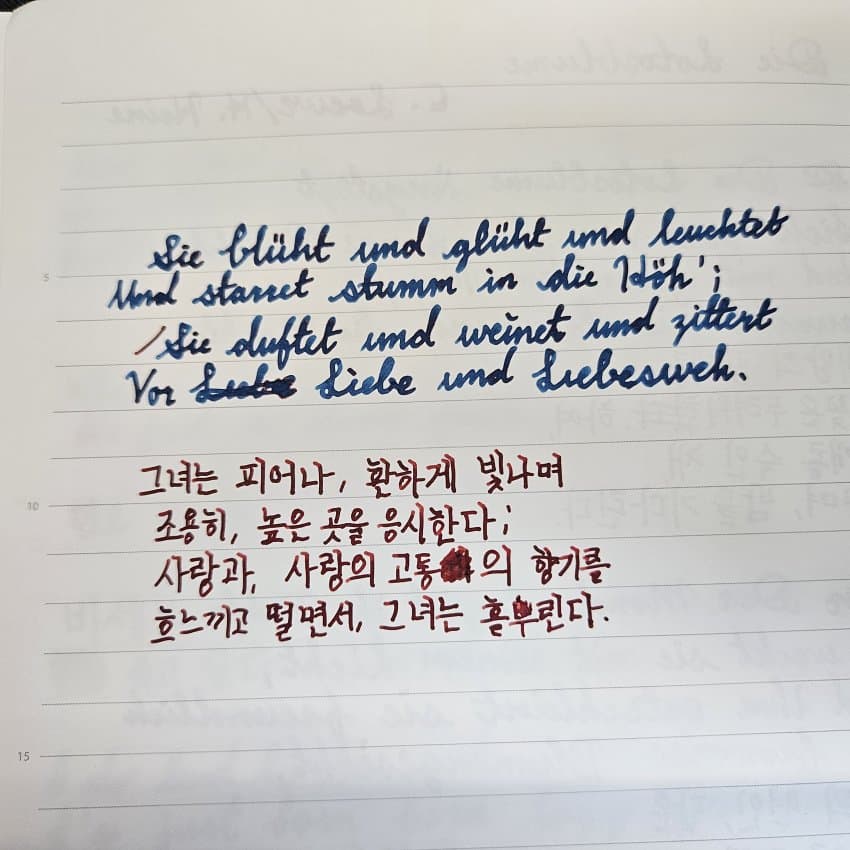 Sie blüht und glüht und leuchtet
Und starret stumm in die Höh';
Sie duftet und weinet und zittert
Vor Liebe und Liebesweh.
그녀는 피어나, 환하게 빛나며
조용히, 높은 곳을 응시한다;
사랑과, 사랑의 고통의 향기를
흐느끼고 떨면서, 그녀는 흩뿌린다.
5
10
15